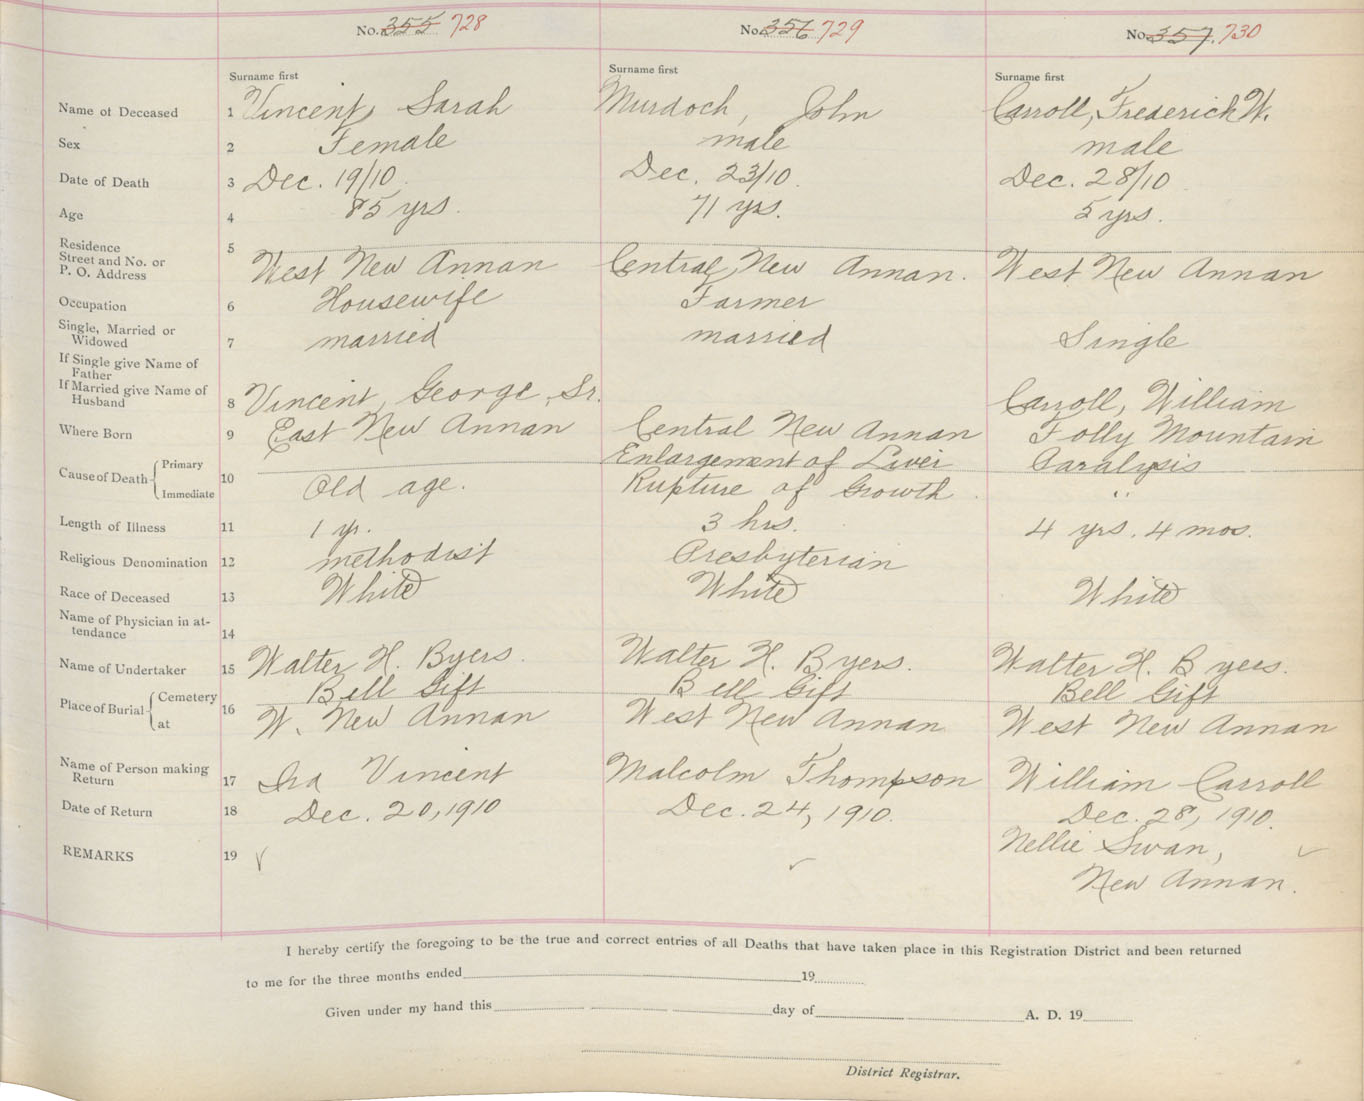 No. 355 728 No. 356 729 No. 357 730
Surname first Surname first Surname first
Name of Deceased 1 Vincent, Sarah Murdoch, John Carroll, Frederick W.
Sex 2 Female male male
Date of Death 3 Dec. 19/10. Dec. 23/10. Dec. 28/10
Age 4 85 yrs. 71 yrs. 5 yrs.
Residence 5
Street and No. or
P. O. Address West New Annan Central New Annan. West New Annan
Occupation 6 Housewife Farmer
Single, Married or
Widowed 7 married married Single
If Single give Name of
Father
If Married give Name of
Husband 8 Vincent, George, Sr. Carroll, William
Where Born 9 East New Annan Central New Annan Folly Mountain
Cause of Death Primary Enlargement of Liver Paralysis
10
Immediate Old age. Rupture of Growth. "
Length of Illness 11 1 yr. 3 hrs. 4 yrs. 4 mos.
Religious Denomination 12 methodist Presbyterian
Race of Deceased 13 White White White
Name of Physician in at-
tendance 14
Name of Undertaker 15 Walter H. Byers. Walter H. Byers. Walter H. Byers.
Place of Burial Cemetery Bell Gift Bell Gift Bell Gift
16
at W. New Annan West New Annan West New Annan
Name of Person making
Return 17 Ira Vincent Malcolm Thompson William Carroll
Date of Return 18 Dec. 20, 1910 Dec. 24, 1910. Dec. 28, 1910.
REMARKS 19 ✓ ✓ Nellie Swan, ✓
New Annan.
I hereby certify the foregoing to be the true and correct entries of all Deaths that have taken place in this Registration District and been returned
to me for the three months ended 19
Given under my hand this day of A. D. 19
District Registrar.